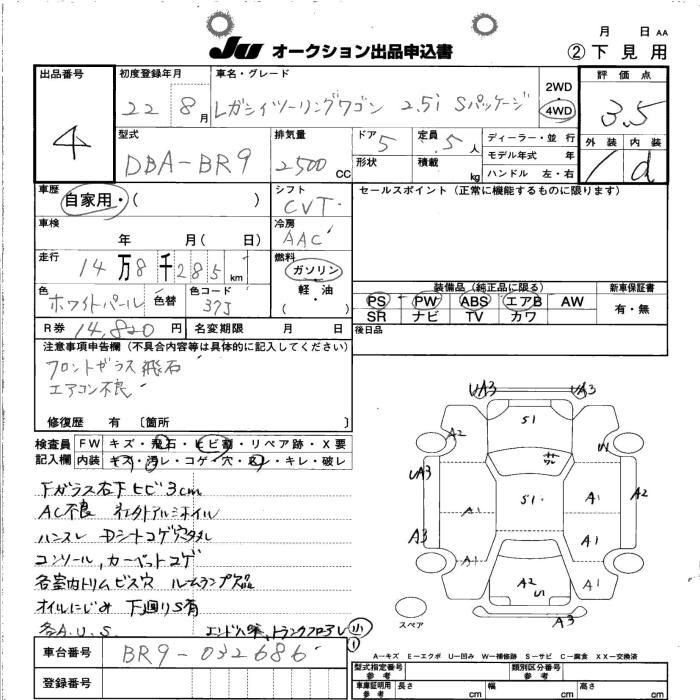 月 日 AA
JU オークション出品申込書 ②下見用
出品番号 初度登録年月 車名・グレード 評価点
4 22 8月 レガシィツーリングワゴン 2.5i Sパッケージ 2WD 4WD 3.5
型式 排気量 ドア 5 定員 5人 ディーラー・並行 外装 内装
DBA-BR9 2500CC 形状 積載 kg モデル年式 年 d
ハンドル 左・右
車歴 自家用・( ) シフト CVT セールスポイント(正常に機能するものに限ります)
車検 年 月( 日) 冷房 AAC
走行 14万8千285km 燃料 ガソリン・軽・油 ( )
装備品(純正品に限る) 新車保証書
色 ホワイトパール 色替 色コード 37J PS PW ABS エアB AW 有・無
SR ナビ TV カワ
R券 14,820円 名変期限 月 日 後日品
注意事項申告欄(不具合内容等は具体的に記入してください)
フロントガラス飛石
エアコン不良
修復歴 有 〔箇所 〕
検査員 FW キズ・飛石・ヒビ割・リペア跡・X要
記入欄 内装 キズ・汚レ・コゲ・穴・スレ・キレ・破レ
Fガラス右下ヒビ3cm
AC不良 社外アルミホイル
ハンスレ Dシートコゲ穴
コンソール,カーペットコゲ
各室内トリムビス穴 ルームランプ欠品
オイルにじみ 下廻りS有
各A.U.S. トランクフロアレ 小
UA3 UA3
S1
A2 U1
サヒ ワレ
UA3 A2
S1 A1
A1
A3 A1
A1 A1
A2 U1
A3
スペア
A-キズ E-エクボ U-凹み W-補修跡 S-サビ C-腐食 XX-交換済
車台番号 BR9-032686 型式指定番号 参考 類別区分番号 参考
登録番号 車庫証明用 参考 長さ cm 幅 cm 高さ cm